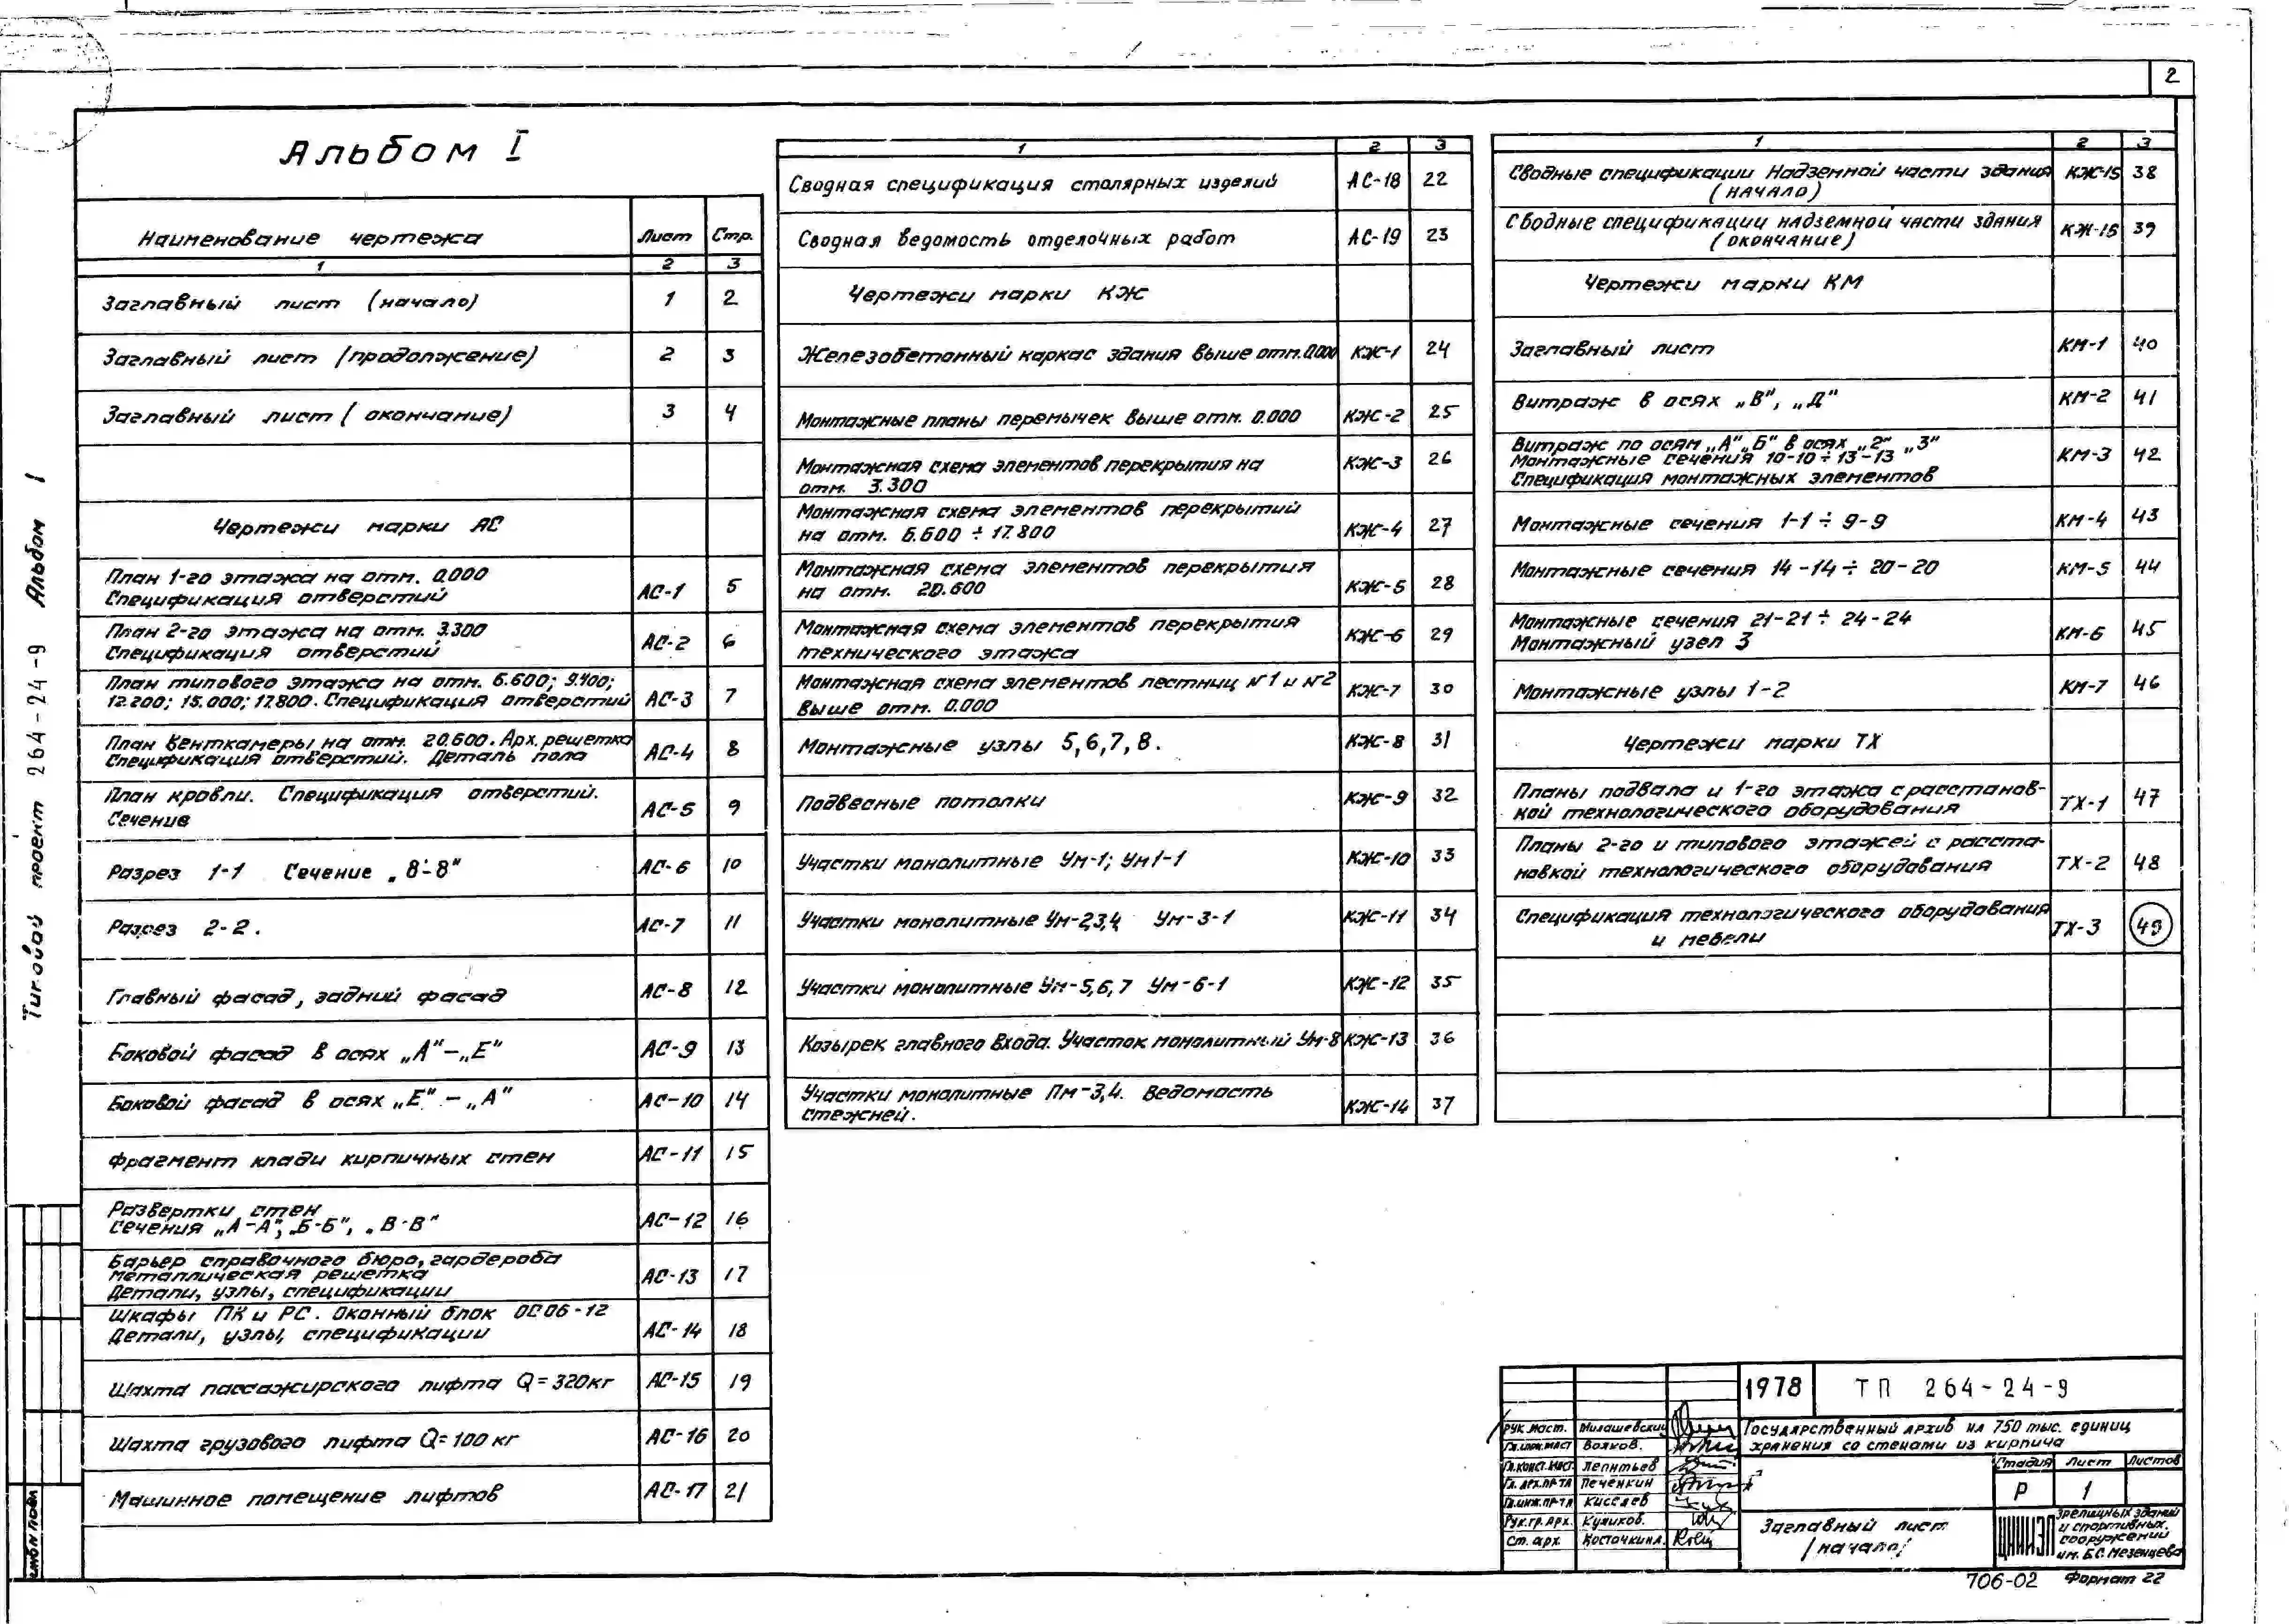 2
Типовой проект 264-24-9 Альбом I
Альбом I
Наименование чертежа Лист Стр.
1 2 3
Заглавный лист (начало) 1 2
Заглавный лист (продолжение) 2 3
Заглавный лист (окончание) 3 4
Чертежи марки АС
План 1-го этажа на отм. 0.000
Спецификация отверстий АС-1 5
План 2-го этажа на отм. 3.300
Спецификация отверстий АС-2 6
План типового этажа на отм. 6.600; 9.400;
12.200; 15.000; 17.800. Спецификация отверстий АС-3 7
План венткамеры на отм. 20.600. Арх. решетка
Спецификация отверстий. Деталь пола АС-4 8
План кровли. Спецификация отверстий.
Сечение АС-5 9
Разрез 1-1 Сечение „8-8" АС-6 10
Разрез 2-2. АС-7 11
Главный фасад, задний фасад АС-8 12
Боковой фасад в осях „А"-„Е" АС-9 13
Боковой фасад в осях „Е"-„А" АС-10 14
Фрагмент клади кирпичных стен АС-11 15
Развертки стен
Сечения „А-А", „Б-Б", „В-В" АС-12 16
Барьер справочного бюро, гардероба
Металлическая решетка
Детали, узлы, спецификации АС-13 17
Шкафы ПК и РС. Оконный блок ОС06-12
Детали, узлы, спецификации АС-14 18
Шахта пассажирского лифта Q=320кг АС-15 19
Шахта грузового лифта Q=100кг АС-16 20
Машинное помещение лифтов АС-17 21
1 2 3
Сводная спецификация столярных изделий АС-18 22
Сводная ведомость отделочных работ АС-19 23
Чертежи марки КЖ
Железобетонный каркас здания выше отм. 0.000 КЖ-1 24
Монтажные планы перемычек выше отм. 0.000 КЖ-2 25
Монтажная схема элементов перекрытия на
отм. 3.300 КЖ-3 26
Монтажная схема элементов перекрытий
на отм. 6.600 ÷ 17.800 КЖ-4 27
Монтажная схема элементов перекрытия
на отм. 20.600 КЖ-5 28
Монтажная схема элементов перекрытия
технического этажа КЖ-6 29
Монтажная схема элементов лестниц №1 и №2
выше отм. 0.000 КЖ-7 30
Монтажные узлы 5,6,7,8. КЖ-8 31
Подвесные потолки КЖ-9 32
Участки монолитные Ум-1; Ум1-1 КЖ-10 33
Участки монолитные Ум-2,3,4 Ум-3-1 КЖ-11 34
Участки монолитные Ум-5,6,7 Ум-6-1 КЖ-12 35
Козырек главного входа. Участок монолитный Ум-8 КЖ-13 36
Участки монолитные Пм-3,4. Ведомость
стежней. КЖ-14 37
1 2 3
Сводные спецификации Надземной части здания
(начало) КЖ-15 38
Сводные спецификации надземной части здания
(окончание) КЖ-16 39
Чертежи марки КМ
Заглавный лист КМ-1 40
Витраж в осях „В", „Д" КМ-2 41
Витраж по осям „А", „Б" в осях „2" „3"
Монтажные сечения 10-10 ÷ 13-13
Спецификация монтажных элементов КМ-3 42
Монтажные сечения 1-1 ÷ 9-9 КМ-4 43
Монтажные сечения 14-14 ÷ 20-20 КМ-5 44
Монтажные сечения 21-21 ÷ 24-24
Монтажный узел 3 КМ-6 45
Монтажные узлы 1-2 КМ-7 46
Чертежи марки ТХ
Планы подвала и 1-го этажа с расстанов-
кой технологического оборудования ТХ-1 47
Планы 2-го и типового этажей с расста-
новкой технологического оборудования ТХ-2 48
Спецификация технологического оборудования
и мебели ТХ-3 49
1978 ТП 264-24-9
Рук. маст. Милашевский
Гл.инж.маст Волков.
Гл.конст.маст. Леонтьев
Гл. арх.пр-та Печенкин
Гл.инж.пр-та Киселев
Рук.гр. арх. Куликов.
Ст. арх. Косточкина.
Государственный архив на 750 тыс. единиц
хранения со стенами из кирпича
Стадия Лист Листов
Р 1
Заглавный лист
(начало)
ЦНИИЭП
зрелищных зданий
и спортивных
сооружений
им. Б.С. Мезенцева
706-02 Формат 22
инв № подл